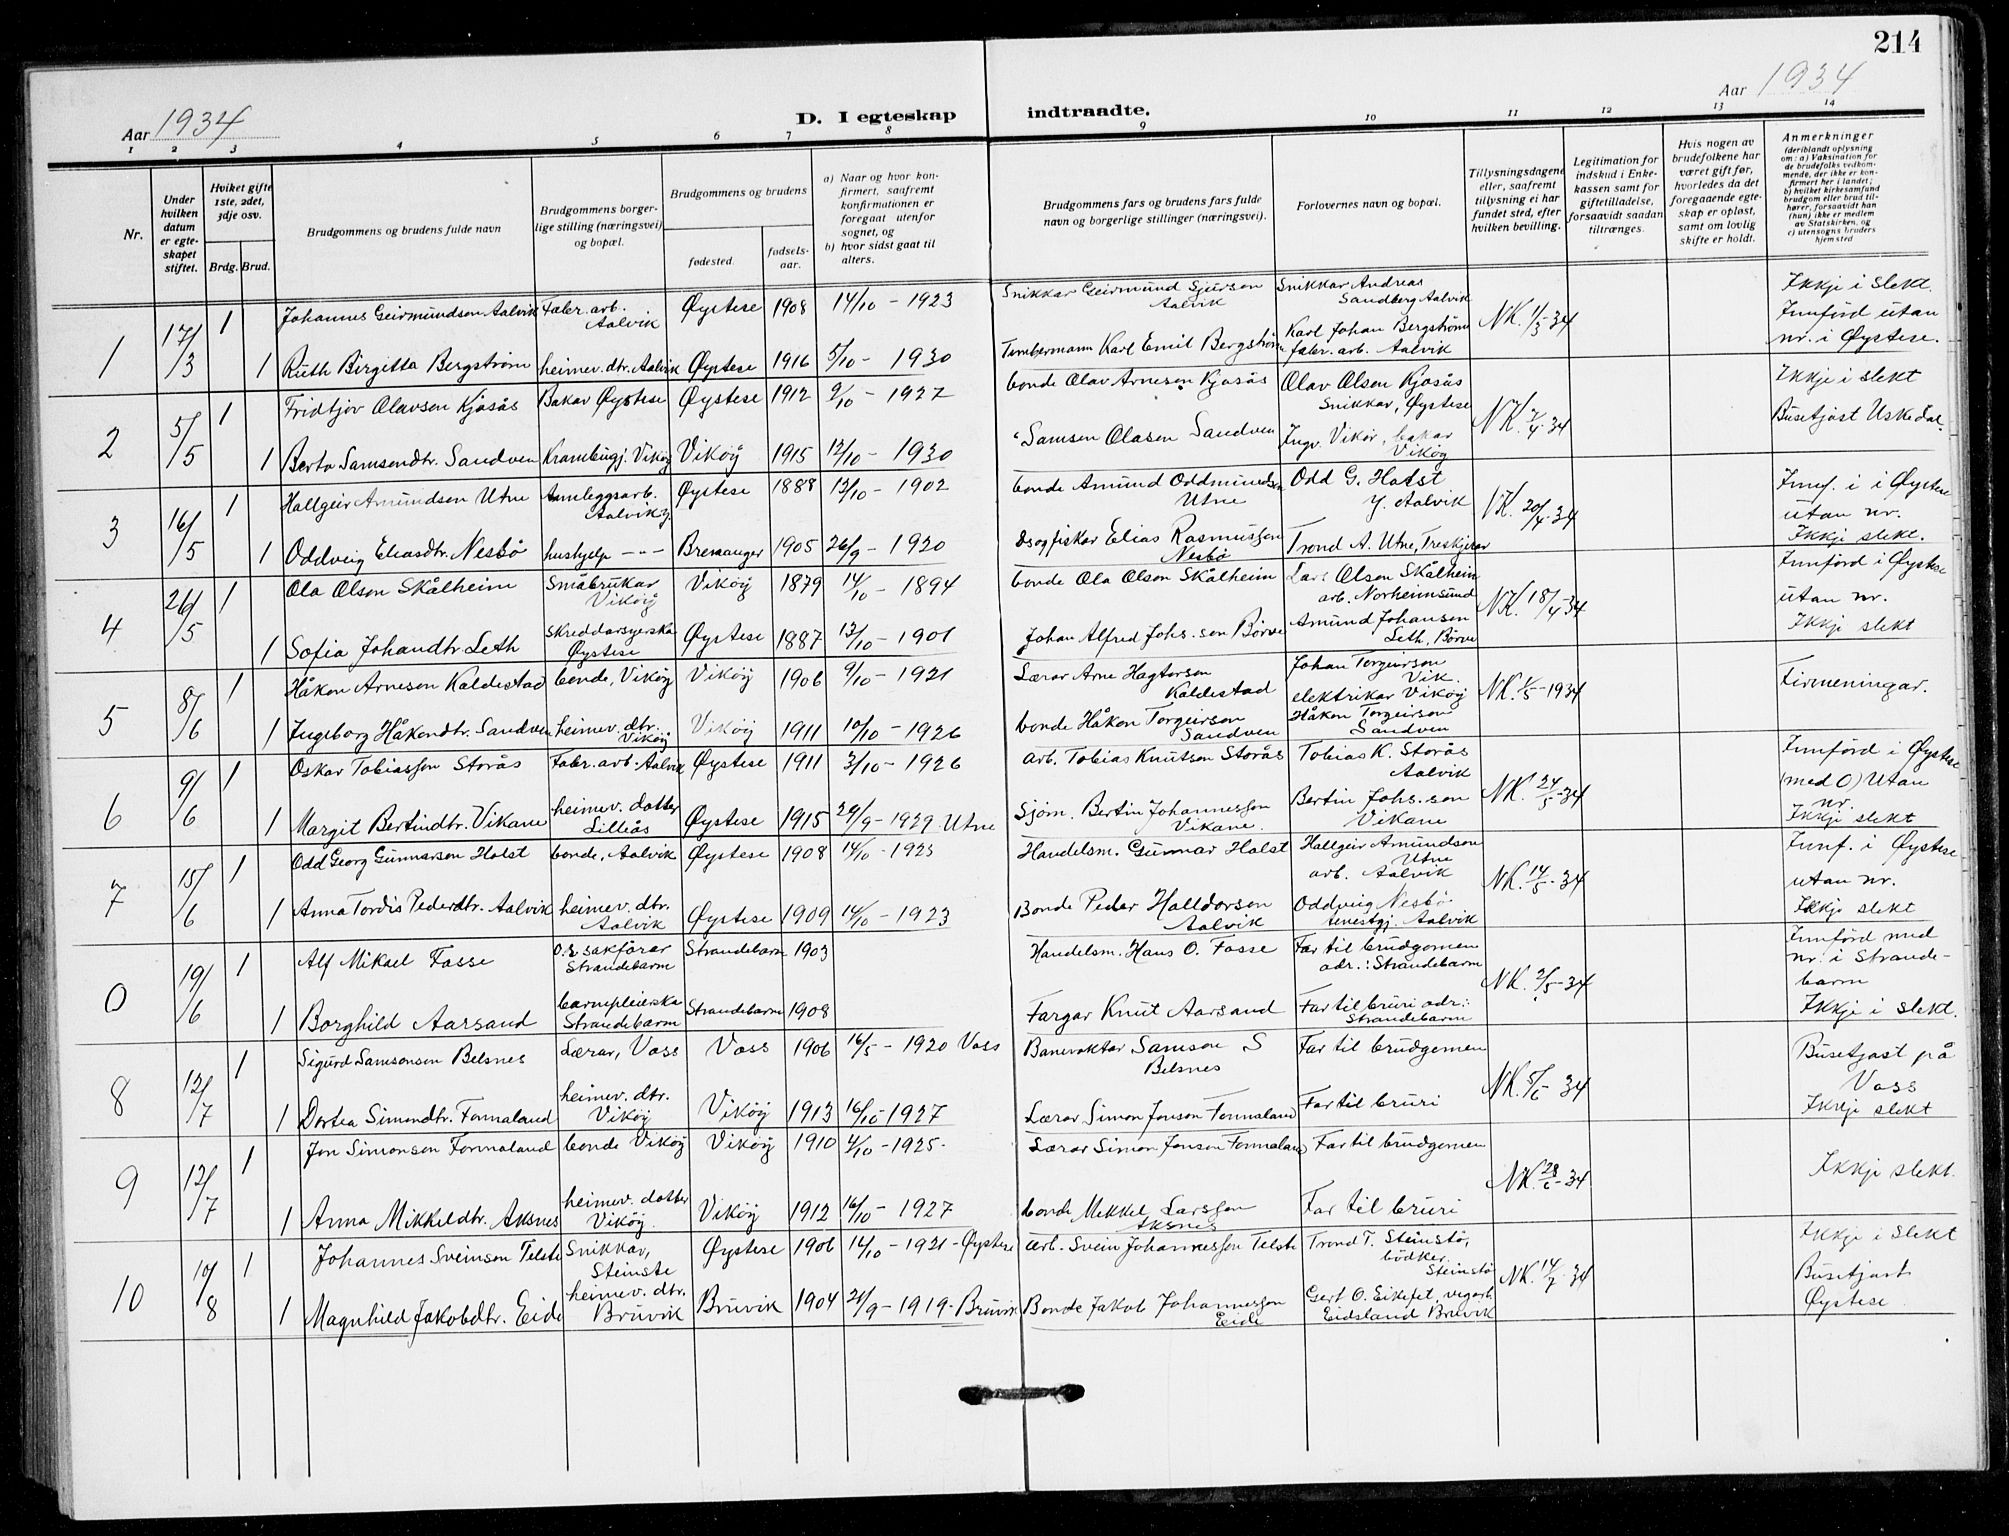 214
Aar 1934
D. I egteskap indtraadte.
Aar 1934
1 2 3 4 5 6 7 8 9 10 11 12 13 14
Nr.
Under hvilken datum er egteskapet stiftet.
Hviket gifte 1ste, 2det, 3dje osv.
Brdg. Brud.
Brudgommens og brudens fulde navn
Brudgommens borgerlige stilling (næringsvei) og bopæl.
Brudgommens og brudens
fødested.
fødselsaar.
a) Naar og hvor konfirmert, saafremt konfirmationen er foregaat utenfor sognet, og
b) hvor sidst gaat til alters.
Brudgommens fars og brudens fars fulde navn og borgerlige stillinger (næringsvei).
Forlovernes navn og bopæl.
Tillysningsdagene eller, saafremt tillysning ei har fundet sted, efter hvilken bevilling.
Legitimation for indskud i Enkekassen samt for giftetilladelse, forsaavidt saadan tiltrænges.
Hvis nogen av brudefolkene har været gift før, hvorledes da det foregaaende egteskap er opløst, samt om lovlig skifte er holdt.
Anmerkninger (deriblandt oplysning om: a) Vaksination for de brudefolks vedkommende, der ikke er konfirmert her i landet; b) hvilket kirkesamfund brudgom eller brud tilhører, forsaavidt han (hun) ikke er medlem av Statskirken, og c) utensogns bruders hjemsted
1 17/3 1 Johannes Geirmundson Aalvik Fabr. arb. Aalvik Øystese 1908 14/10 - 1923 Snikkar Geirmund Sjurson Aalvik Snikkar Andreas Sandberg Aalvik NK. 1/3 - 34 Ikkje i slekt. Innförd utan nr. i Øystese.
1 Ruth Birgitta Bergström heimev. dtr. Aalvik Øystese 1916 5/10 - 1930 Tømbermann Karl Emil Bergström Karl Johan Bergström fabr. arb. Aalvik
2 5/5 1 Fridtjov Olavson Kjosås Bakar Øystese Øystese 1912 2/10 - 1927 bonde Olav Arneson Kjosås Olav Olson Kjosås Snikkar, Øystese NK. 7/4 - 34 Ikkje i slekt Busetjast Uskedal.
1 Berta Samsondtr. Sandven Krambugj. Vikøy Vikøy 1915 12/10 - 1930 " Samson Olason Sandven Ingv. Vikør, bakar Vikøy
3 16/5 1 Hallgeir Amundson Utne Annleggsarb. Aalvik y. Øystese 1888 12/10 - 1902 bonde Amund Oddmundson Utne Odd G. Holst Y. Aalvik NK. 20/4 - 34 Innf. i i Øystese utan nr. Ikkje slekt.
1 Oddveig Eliasdtr. Nesbö hushjelp - " - Bremanger 1905 26/9 - 1920 Elias Rasmusson Nesbö Trond A. Utne,
4 26/5 1 Ola Olson Skålheim Småbrukar Vikøy Vikøy 1879 14/10 - 1894 bonde Ola Olson Skålheim Lars Olson Skålheim arb. Norheimsund NK. 18/4 - 34 Innförd i Øystese utan nr. Ikkje slekt
1 Sofia Johandtr. Leth Skreddarsyerska Øystese Øystese 1887 12/10 - 1901 Johan Alfred Johs. son Børve Amund Johansen Leth, Børve
5 8/6 1 Håkon Arneson Kaldestad bonde, Vikøy Vikøy 1906 9/10 - 1921 Lærar Arne Hagtorson Kaldestad Johan Torgeirson Vik. elektrikar Vikøy NK. 1/5 - 1934 Firmeningar.
1 Ingeborg Håkondtr. Sandven heimev. dtr. Vikøy Vikøy 1911 10/10 - 1926 bonde Håkon Torgeirson Sandven Håkon Torgeirson Sandven
6 9/6 1 Oskar Tobiasson Storås Fabr. arb. Aalvik Øystese 1911 3/10 - 1926 arb. Tobias Knutson Storås Tobias K. Storås Aalvik NK. 24/5 - 34 Innförd i Øystese (med 0) Utan nr. Ikkje slekt
1 Margit Bertindtr. Vikane heimev. dotter Lilleås Øystese 1915 29/9 - 1929 Utne Sjøm. Bertin Johannesson Vikane. Bertin Johs. son Vikane
7 15/6 1 Odd Georg Gunnarson Holst bonde, Aalvik Øystese 1908 14/10 - 1923 Handelsm. Gunnar Holst Hallgeir Amundson Utne arb. Aalvik NK. 14/5 - 34 Innf. i Øystese utan nr. Ikkje slekt
1 Anna Tordis Pederdtr. Aalvik heimev. dtr. Aalvik Øystese 1909 14/10 - 1923 Bonde Peder Halldorson Aalvik Oddveig Nesbö tenestgj. Aalvik
0 19/6 1 Alf Mikael Fosse O.r. sakförar Strandebarm Strandebarm 1903 Handelsm. Hans O. Fosse Far til brudgomen adr.: Strandebarm NK. 2/5 - 34 Innförd med nr. i Strandebarm Ikkje i slekt.
1 Borghild Aarsand barnepleierska Strandebarm Strandebarm 1908 Fargar Knut Aarsand Far til bruri adr.: Strandebarm
8 12/7 1 Sigurd Samsonson Belsnes Lærar, Voss Voss 1906 16/5 - 1920 Voss Banevaktar Samson S Belsnes Far til brudgomen NK. 5/6 - 34 Busetjast på Voss Ikkje slekt
1 Dortea Simondtr. Tormaland heimev. dtr. Vikøy Vikøy 1913 16/10 - 1927 Lærar Simon Jonson Tormaland Far til bruri
9 12/7 1 Jon Simonson Tormaland bonde Vikøy Vikøy 1910 4/10 - 1925. Lærar Simon Jonson Tormaland Far til brudgomen NK. 28/6 - 34 Ikkje slekt.
1 Anna Mikkeldtr. Aksnes heimev. dotter Vikøy. Vikøy 1912 16/10 - 1927 bonde Mikkel Larsson Aksnes Far til bruri
10 10/8 1 Johannes Sveinson Telste Snikkar, Steinstø Øystese 1906 16/10 - 1921 - Øystese arb. Svein Johannesson Telste Trond T. Steinstø, bödker Steinstø NK. 14/7 - 34 Ikkje i slekt Busetjast Øystese
1 Magnhild Jakobdtr. Eide heimev. dtr. Bruvik Bruvik 1904 21/9 - 1919 - Bruvik Bonde Jakob Johannesson Eide Gert O. Eikefet, vegarb. Eidsland Bruvik